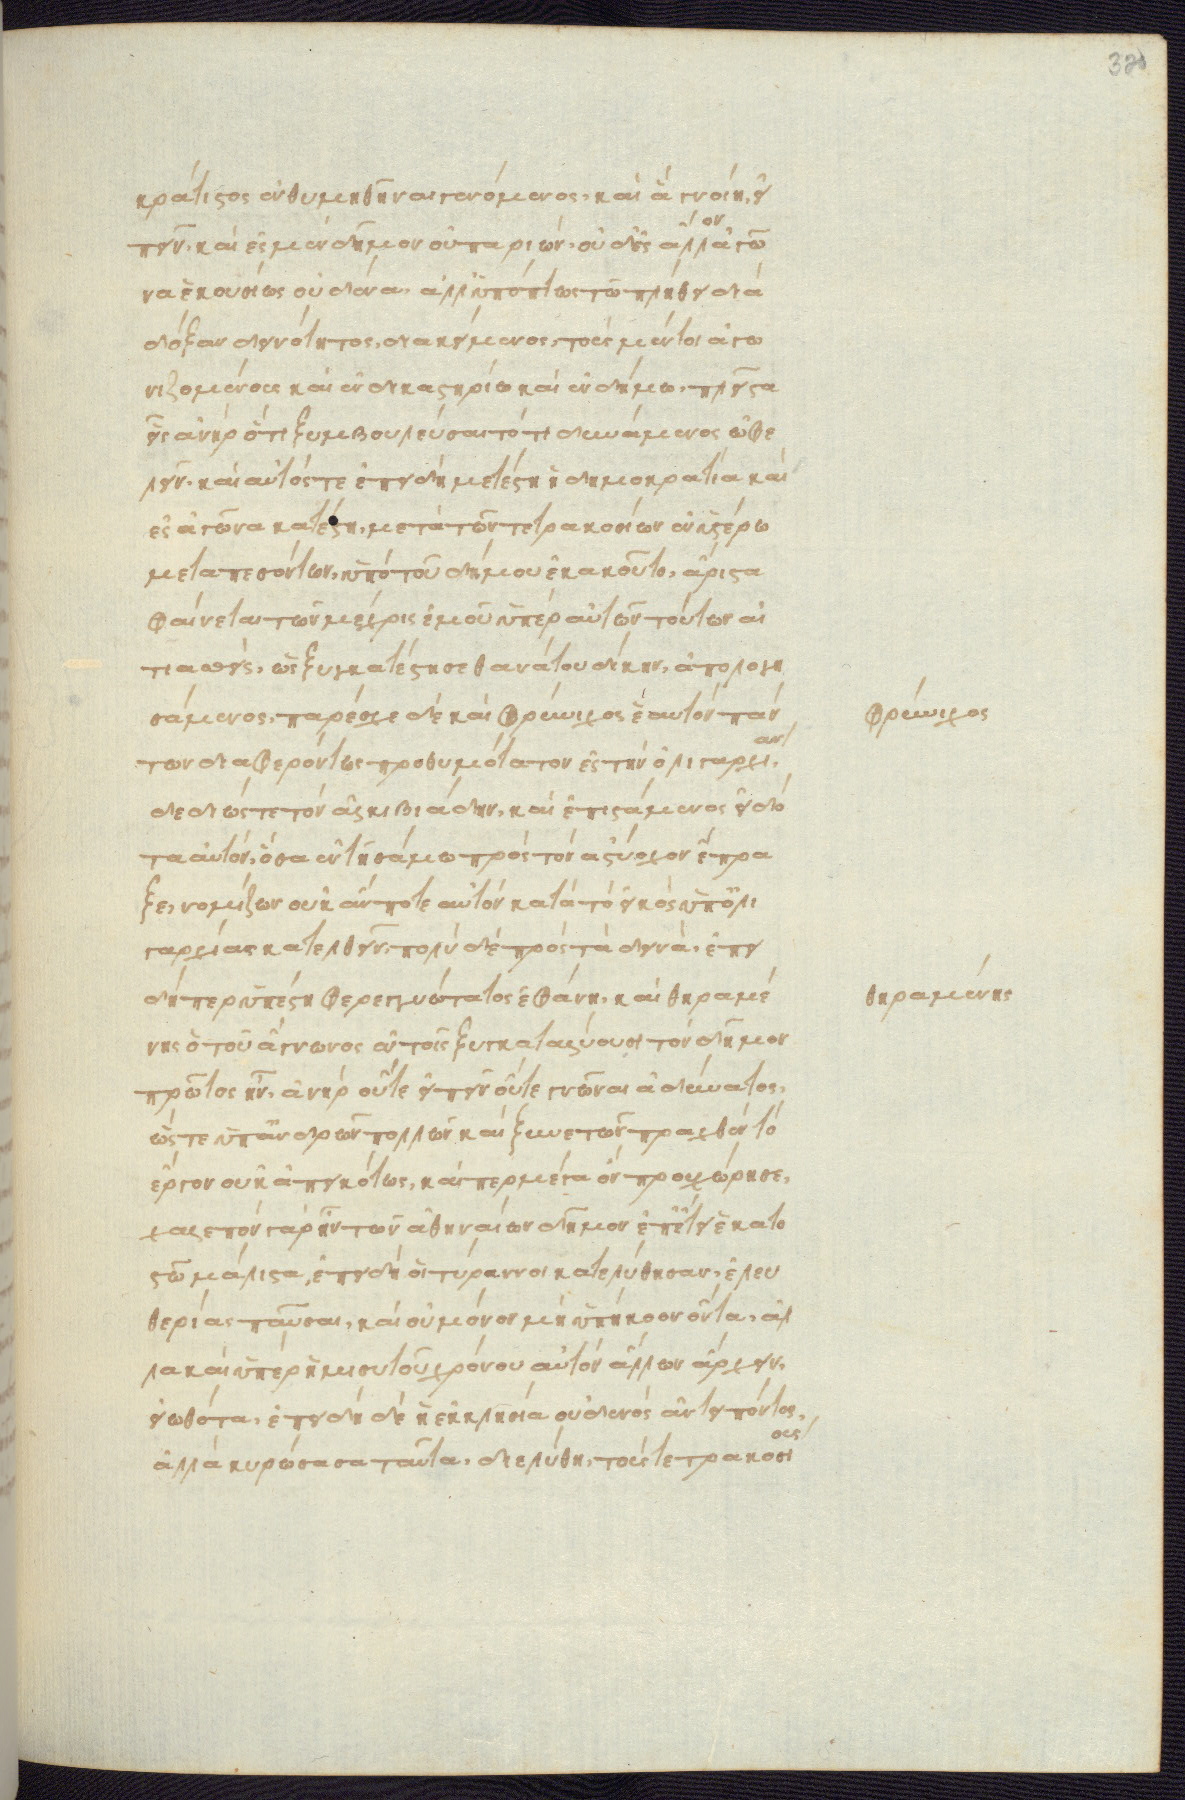 321
κράτιστος ἐνθυμηθῆναι γενόμενος, καὶ ἃ γνοίη, εἰ
πεῖν. καὶ ἐς μὲν δῆμον οὐ παριὼν, οὐδ' ἐς ἄλλον ἀγῶ
να ἑκουσίως οὐδένα, ἀλλ' ὑπόπτως τῷ πλήθει διὰ
δόξαν δεινότητος, διακείμενος, τοὺς μέντοι ἀγω
νιζομένους καὶ ἐν δικαστηρίω καὶ ἐν δήμω, πλεῖστα
εἷς ἀνὴρ ὅτι ξυμβουλεύσαιτό τι δυνάμενος ὠφε
λεῖν. καὶ αὐτός τε ἐπειδὴ μετέστη ἡ δημοκρατία καὶ
ἐς ἀγῶνα κατέστη, μετὰ τῶν τετρακοσίων ἐν ὑστέρω
μεταπεσόντων, ὑπὸ τοῦ δήμου ἐκακοῦτο, ἄριστα
φαίνεται τῶν μέχρις ἐμοῦ ὑπὲρ αὐτῶν τούτων αἰ
τιαθεὶς, ὡς ξυγκατέστησε θανάτου δίκην, ἀπολογη
σάμενος, παρέσχε δὲ καὶ φρύνιχος ἑαυτὸν πάν
των διαφερόντως προθυμότατον ἐς τὴν ὀλιγαρχίαν,
δεδιώς τε τὸν ἀλκιβιάδην, καὶ ἐπιστάμενος εἰδό
τα αὐτὸν, ὅσα ἐν τῆ σάμω πρὸς τὸν ἀστύοχον ἔπρα
ξε, νομίζων οὐκ ἄν ποτε αὐτὸν κατὰ τὸ εἰκὸς ὑπ' ὀλι
γαρχίας κατελθεῖν, πολύ δὲ πρὸς τὰ δεινὰ, ἐπει
δήπερ ὑπέστη φερεγγυώτατος ἐφάνη, καὶ θηραμέ
νης ὁ τοῦ ἅγνωνος ἐν τοῖς ξυγκαταλύουσι τὸν δῆμον
πρῶτος ἦν, ἀνὴρ οὔτε εἰπεῖν οὔτε γνῶναι ἀδύνατος,
ὥστε ὑπ' ἀνδρῶν πολλῶν καὶ ξυνετῶν πραχθὲν τὸ
ἔργον οὐκ ἀπεικότως, καίπερ μέγα ὂν προχώρησε,
χαλεπὸν γὰρ ἦν τῶν ἀθηναίων δῆμον ἐπ' ἔτει ἑκατο
στῶ μάλιστα, ἐπειδὴ οἱ τύραννοι κατελύθησαν, ἐλευ
θερίας παῦσαι, καὶ οὐ μόνον μὴ ὑπήκοον ὄντα, ἀλ
λα καὶ ὑπὲρ ἥμισυ τοῦ χρόνου αὐτὸν ἄλλων ἄρχειν,
εἰωθότα, ἐπειδὴ δὲ ἡ ἐκκλησία οὐδενὸς ἀντειπόντος,
ἀλλὰ κυρώσασα ταῦτα, διελύθη, τοὺς τετρακοσίους
φρύνιχος
θηραμένης